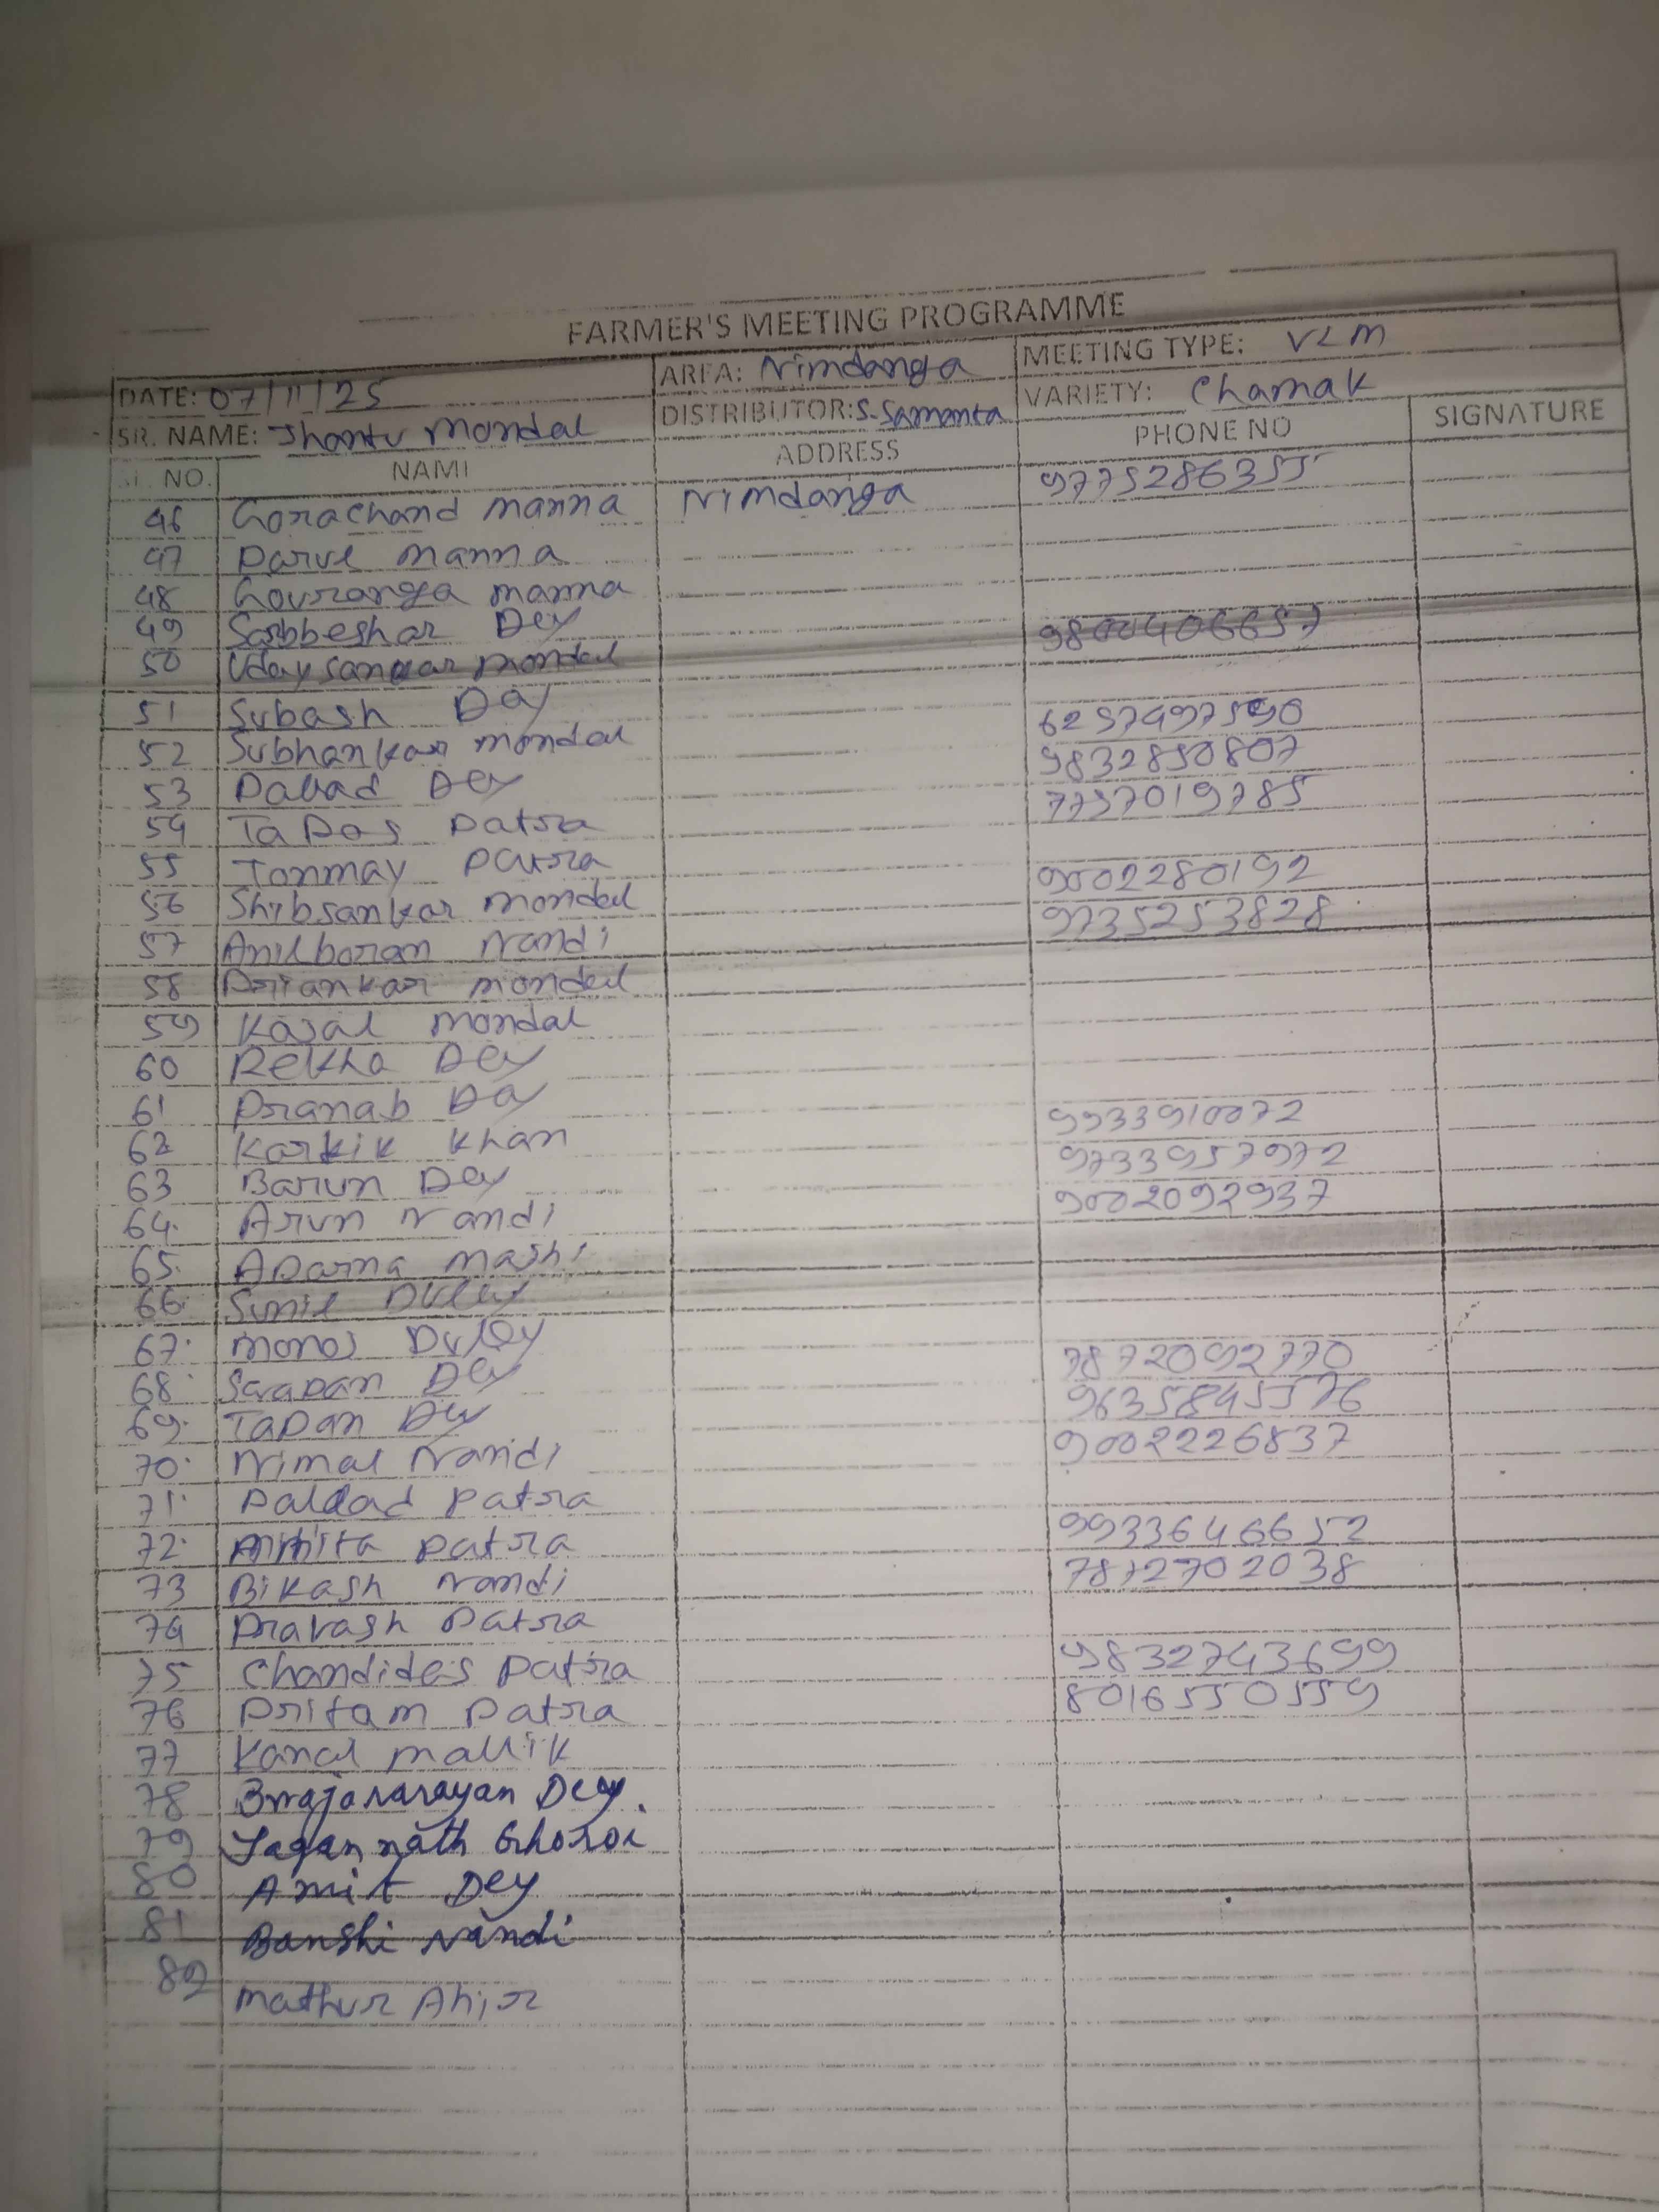 FARMER'S MEETING PROGRAMME
DATE: 07/11/25 AREA: Nimdanga MEETING TYPE: VLM
SR. NAME: Jhantu Mondal DISTRIBUTOR: S. Samanta VARIETY: Chamak
SL. NO. NAME ADDRESS PHONE NO SIGNATURE
46 Gorachand Manna Nimdanga 9775286355
47 Parul Manna
48 Gouranga Manna
49 Sarbbeshar Dey
50 Udaysankar Mondal 9800406657
51 Subash Dey
52 Subhankar Mondal 6257497590
53 Pallad Dey 9832850807
54 Tapas Patra 7757019785
55 Tonmay Patra
56 Shibsankar Mondal 9002280192
57 Anilbaran Nandi 9735253828
58 Priankar Mondal
59 Kajal Mondal
60 Rekha Dey
61 Pranab Dey
62 Kartik Khan 9933910072
63 Barun Dey 9733957972
64. Arun Nandi 9002092937
65. Aparna Mashi
66. Sunil Duley
67. Monoj Duley
68. Swapan Dey 7872092770
69. Tapan Dey 9635845576
70. Nimal Nandi 9002226837
71. Paldad Patra
72. Patra 9933646652
73 Bikash Nandi 7872702038
74 Pravash Patra
75 Chandidas Patra 9832743699
76 Pritam Patra 8016550559
77 Kanal Mallik
78 Brajanarayan Dey.
79 Jagannath Ghoroi
80 Amit Dey
81 Banshi Nandi
82 Mathur Ahir